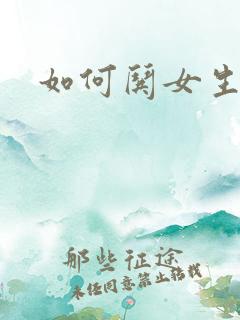 如何鬨女生
那些征途
未经同意禁止转载